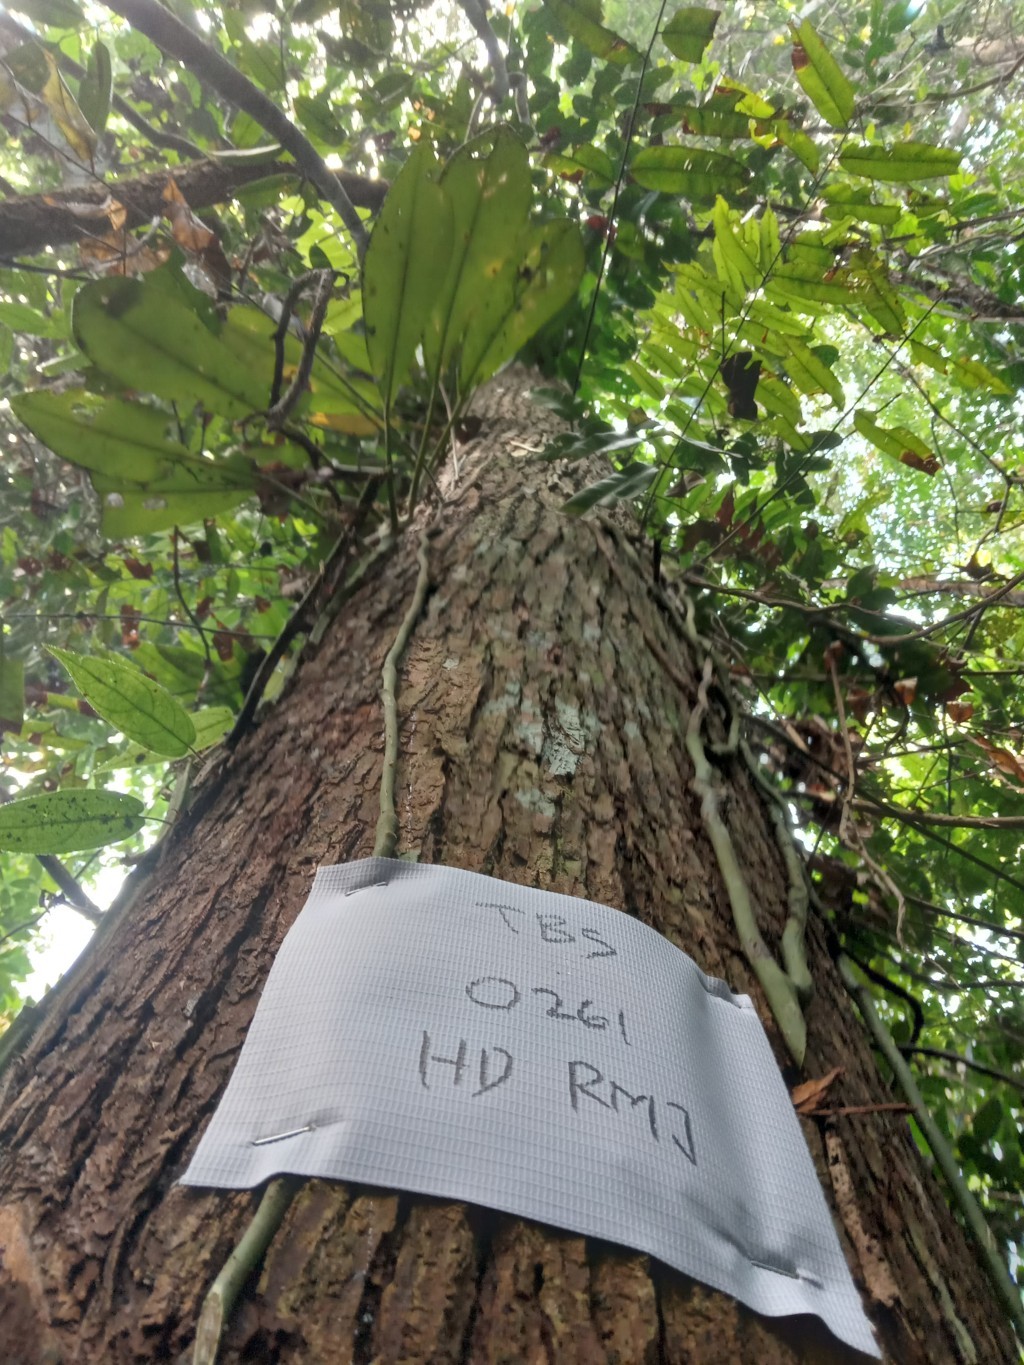 TBS
0261
HD RMJ